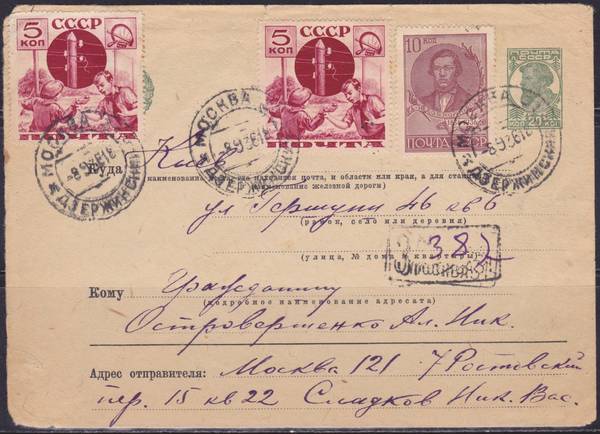 5 СССР
КОП
ПОЧТА
5 СССР
КОП
ПОЧТА
10 КОП
ПОЧТА СССР
ПОЧТА СССР
20 КОП
МОСКВА
ДЗЕРЖИНСКИЙ
МОСКВА
ДЗЕРЖИНСКИЙ
МОСКВА
ДЗЕРЖИНСКИЙ
Куда Киев
наименование почта, и области или края, а для
наименование железной дороги)
ул Гершуни 46 кв 6
(район, село или деревня)
(улица, № дома и квартиры)
З 382
Москва
Кому Гражданину
(подробное наименование адресата)
Островершенко Ал. Ник.
Адрес отправителя: Москва 121 7 Ростовский
пер. 15 кв 22 Сладков Ник. Вас.